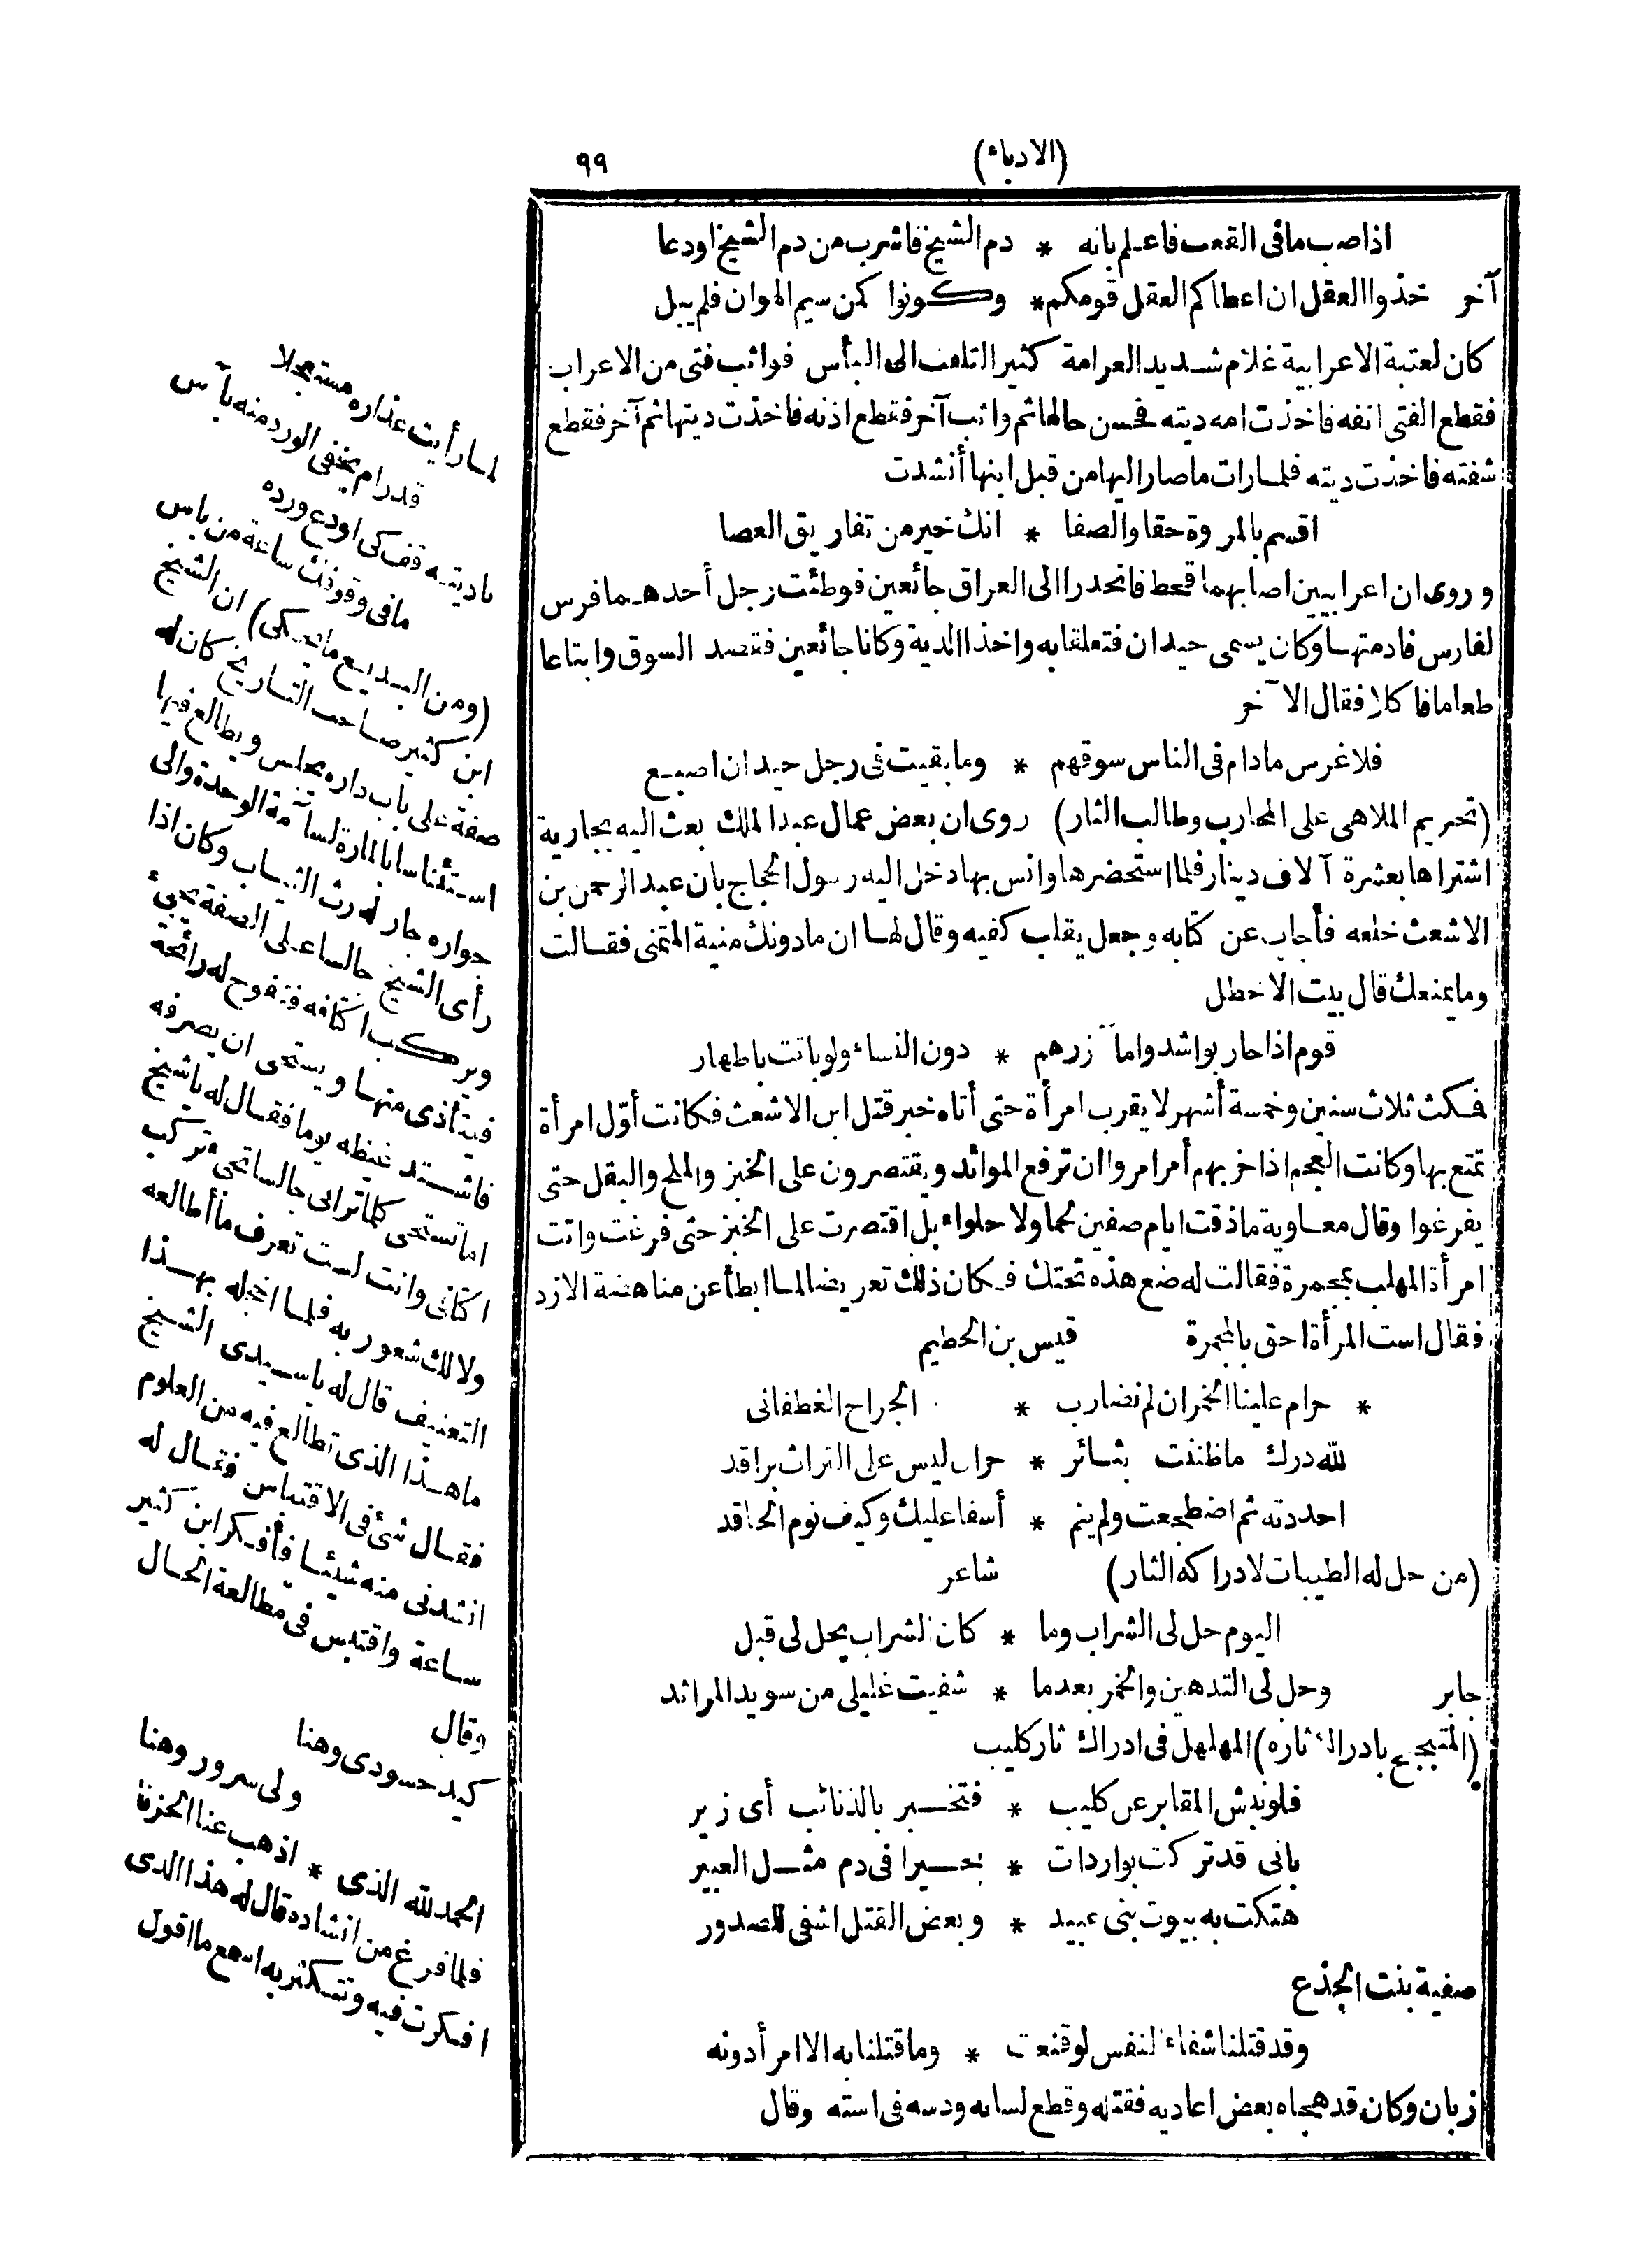 (الادباء) ٩٩
اذا صب ما فى القعب فاعلم بانه * دم الشيخ فاشرب من دم الشيخ اودعا
آخر خذوا العقل ان اعطاكم العقل قومكم * وكونوا كمن سيم الهوان فلم يبل
كان لعتبة الاعرابية غلام شديد العرامة كثير التلفت الى البأس فواثب فتى من الاعراب
فقطع الفتى انفه فاخذت امه ديته فحسن حالها ثم واثب آخر فقطع اذنه فاخذت ديتها ثم آخر فقطع
شفته فاخذت ديته فلما رات ما صار اليها من قبل ابنها أنشدت
اقسم بالمروة حقا والصفا * انك خير من تفاريق العصا
وروى ان اعرابيين اصابهما قحط فانحدرا الى العراق جائعين فوطئت رجل أحدهما فرس
لفارس فادمتها وكان يسمى حيدان فتعلقا به واخذا الدية وكانا جائعين فقصد السوق وابتاعا
طعاما فاكلا فقال الآخر
فلا غرس مادام فى الناس سوقهم * وما بقيت فى رجل حيدان اصبع
(تحريم الملاهى على المحارب وطالب الثار) روى ان بعض عمال عبد الملك بعث اليه بجارية
اشتراها بعشرة آلاف دينار فلما استحضرها وانس بها دخل اليه رسول الحجاج بان عبد الرحمن بن
الاشعث خلعه فأجاب عن كتابه وجعل يقلب كفيه وقال لها ان ما دونك منية المتمنى فقالت
وما يمنعك قال بيت الاخطل
قوم اذا حاربوا شدوا مآزرهم * دون النساء ولو باتت باطهار
فمكث ثلاث سنين وخمسة أشهر لا يقرب امرأة حتى أتاه خبر قتل ابن الاشعث فكانت أوّل امرأة
تمتع بها وكانت العجم اذا حزبهم أمر امروا ان ترفع الموائد ويقتصرون على الخبز والملح والبقل حتى
يفرغوا وقال معاوية ما ذقت ايام صفين لحما ولا حلواء بل اقتصرت على الخبز حتى فرغت واتت
امرأة المهلب بمجمرة فقالت له ضع هذه تحتك فكان ذلك تعريضا لما ابطأ عن مناهضة الازد
فقال است المرأة احق بالمجمرة قيس بن الخطيم
* حرام علينا الخمر ان لم نضارب * الجراح الغطفانى
لله درك ما ظننت بثائر * حران ليس على التراث براقد
احددته ثم اضطجعت ولم ينم * أسفا عليك وكيف نوم الحاقد
(من حل له الطيبات لادراكه الثار) شاعر
اليوم حل لى الشراب وما * كان الشراب يحل لى قبل
جابر وحل لى التدهين والخمر بعدما * شفيت غليلى من سويد المراثد
(المتبجح بادراك ثاره) المهلهل فى ادراك ثار كليب
فلو نبش المقابر عن كليب * فتخبر بالذنائب أى زير
بانى قد تركت بواردات * بجيرا فى دم مثل العبير
هتكت به بيوت بنى عبيد * وبعض القتل اشفى للصدور
صفية بنت الجذع
وقد قتلنا شفاء النفس لو قنعت * وما قتلنا به الا امرأ دونه
زبان وكان قد هجاه بعض اعاديه فقتله وقطع لسانه ودسه فى استه وقال
لما رأيت عذاره مستعجلا
قد رام يخفى الورد منه بآس
ناديته قف كى اودع ورده
ما فى وقوفك ساعة من باس
(ومن البديع ما يحكى) ان الشيخ
ابن كثير صاحب التاريخ كان له
صفة على باب داره يجلس ويطالع فيها
استئناسا بالمارة لسآمة الوحدة والى
جواره جار له رث الثياب وكان اذا
رأى الشيخ جالسا على الصفة يجيئ
ويركب اكتافه فتفوح له رائحة
فيتأذى منها ويستحى ان يصرفه
فاشتد غيظه يوما فقال له يا شيخ
اما تستحى كلما ترانى جالسا تجىء تركب
اكتافى وانت لست تعرف ما أطالعه
ولا لك شعور به فلما اخجله بهذا
التعنيف قال له يا سيدى الشيخ
ما هذا الذى تطالع فيه من العلوم
فقال شئ فى الاقتباس فقال له
انشدنى منه شيئا فأفكر ابن كثير
ساعة واقتبس فى مطالعة الحال
وقال
كيد حسودى وهنا
ولى سرور وهنا
الحمد لله الذى * اذهب عنا الحزنا
فلما فرغ من انشاده قال له هذا الذى
افكرت فيه وتتكثر به اسمع ما اقول